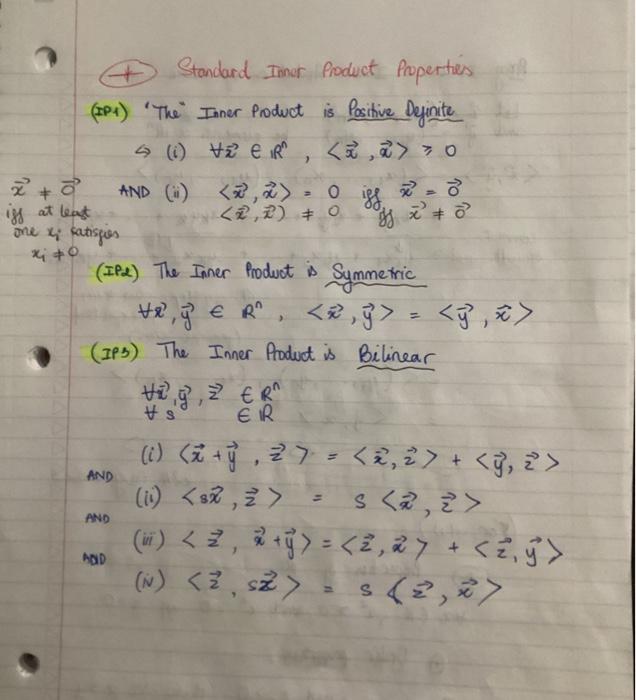 + Standard Inner Product Properties
(IP1) "The" Inner Product is Positive Definite
↳ (i) ∀x⃗ ∈ ℝⁿ, <x⃗, x⃗> ≥ 0
AND (ii) <x⃗, x⃗> = 0 iff x⃗ = 0⃗
<x⃗, x⃗> ≠ 0 iff x⃗ ≠ 0⃗
x⃗ ≠ 0⃗
iff at least
one xⱼ satisfies
xⱼ ≠ 0
(IP2) The Inner Product is Symmetric
∀x⃗, y⃗ ∈ ℝⁿ, <x⃗, y⃗> = <y⃗, x⃗>
(IP3) The Inner Product is Bilinear
∀x⃗, y⃗, z⃗ ∈ ℝⁿ
∀ s ∈ ℝ
(i) <x⃗ + y⃗, z⃗> = <x⃗, z⃗> + <y⃗, z⃗>
AND
(ii) <sx⃗, z⃗> = s <x⃗, z⃗>
AND
(iii) <z⃗, x⃗ + y⃗> = <z⃗, x⃗> + <z⃗, y⃗>
AND
(iv) <z⃗, sx⃗> = s <z⃗, x⃗>